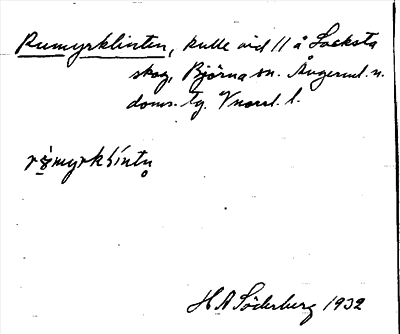 Rumyrklinten, kulle vid 11 å Locksta
skog, Björna sn. Ångerml. n.
doms. tg. Vnorrl. l.
H A Söderberg 1932